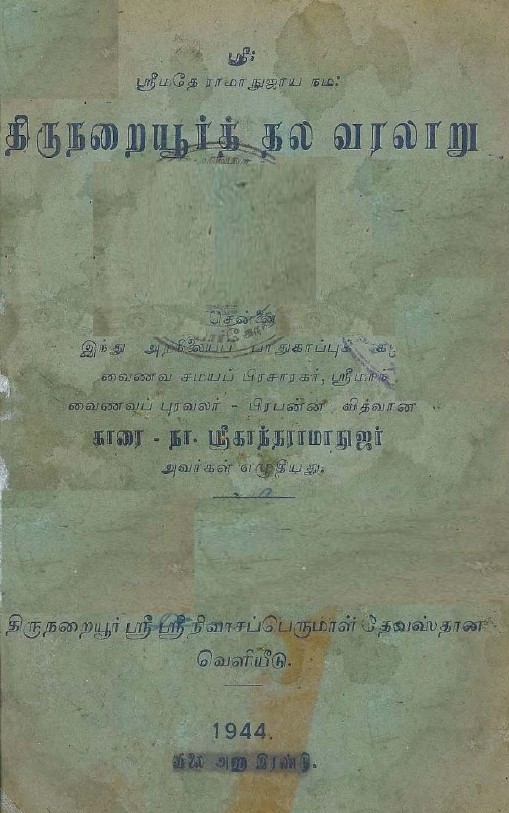 ஸ்ரீ:
ஸ்ரீமதே ராமாநுஜாய நம:
திருநறையூர்த் தல வரலாறு
சென்னை
இந்து அறநிலையப் பாதுகாப்புக்
வைணவ சமயப் பிரசாரகர், ஸ்ரீமான்
வைணவப் புரவலர் - பிரபன்ன வித்வான்
காரை - நா. ஸ்ரீகாந்தராமாநுஜர்
அவர்கள் எழுதியது.
திருநறையூர் ஸ்ரீ ஸ்ரீநிவாசப்பெருமாள் தேவஸ்தான
வெளியீடு.
1944.
விலை அணு இரண்டு.